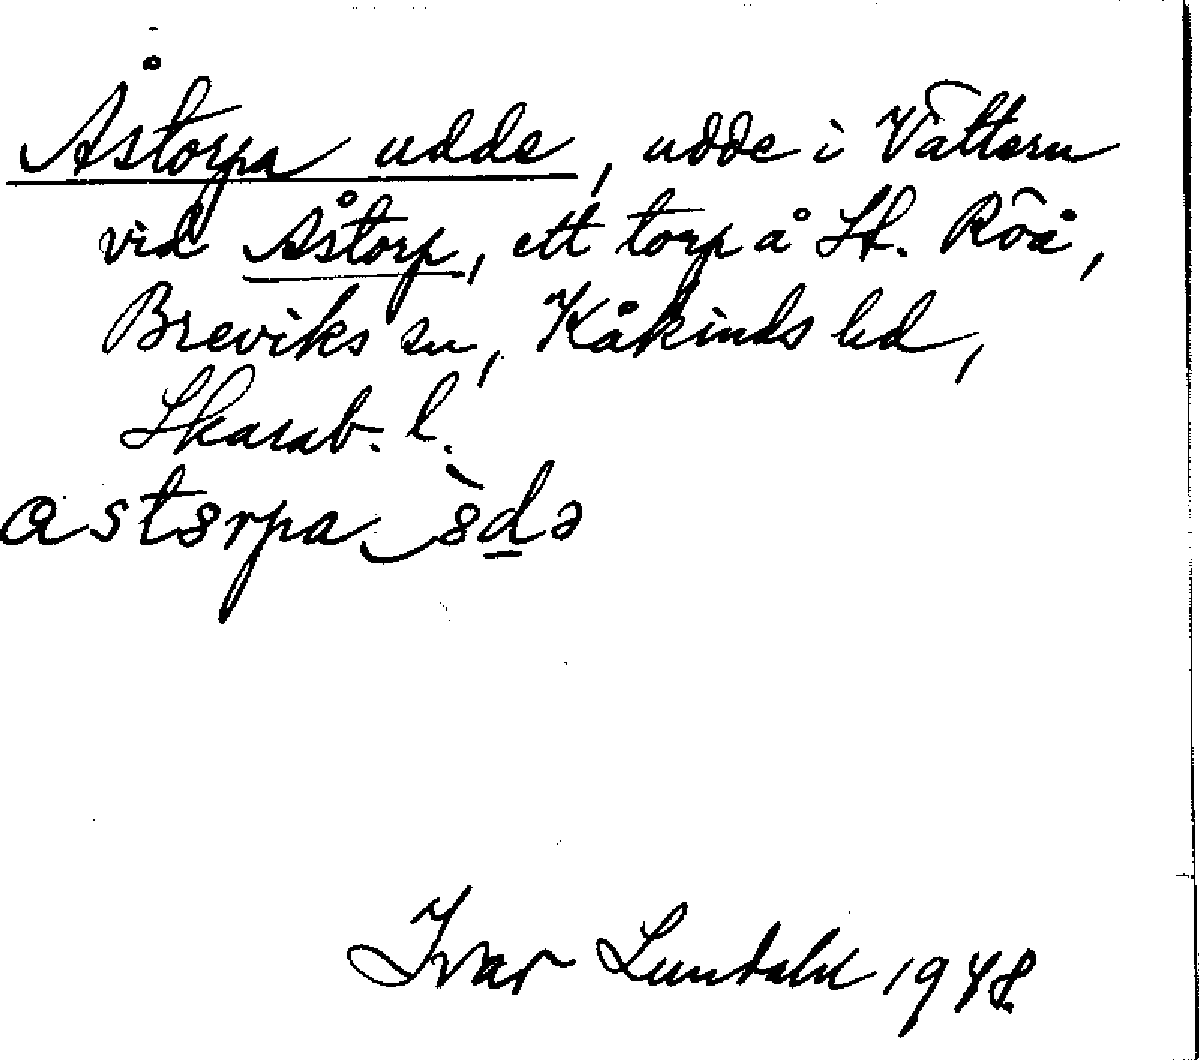 Åstorpa udde, udde i Vättern
vid Åstorp, ett torp å St. Röå,
Breviks sn, Kåkinds hd,
Skarab. l.
Ivar Lundahl 1948.